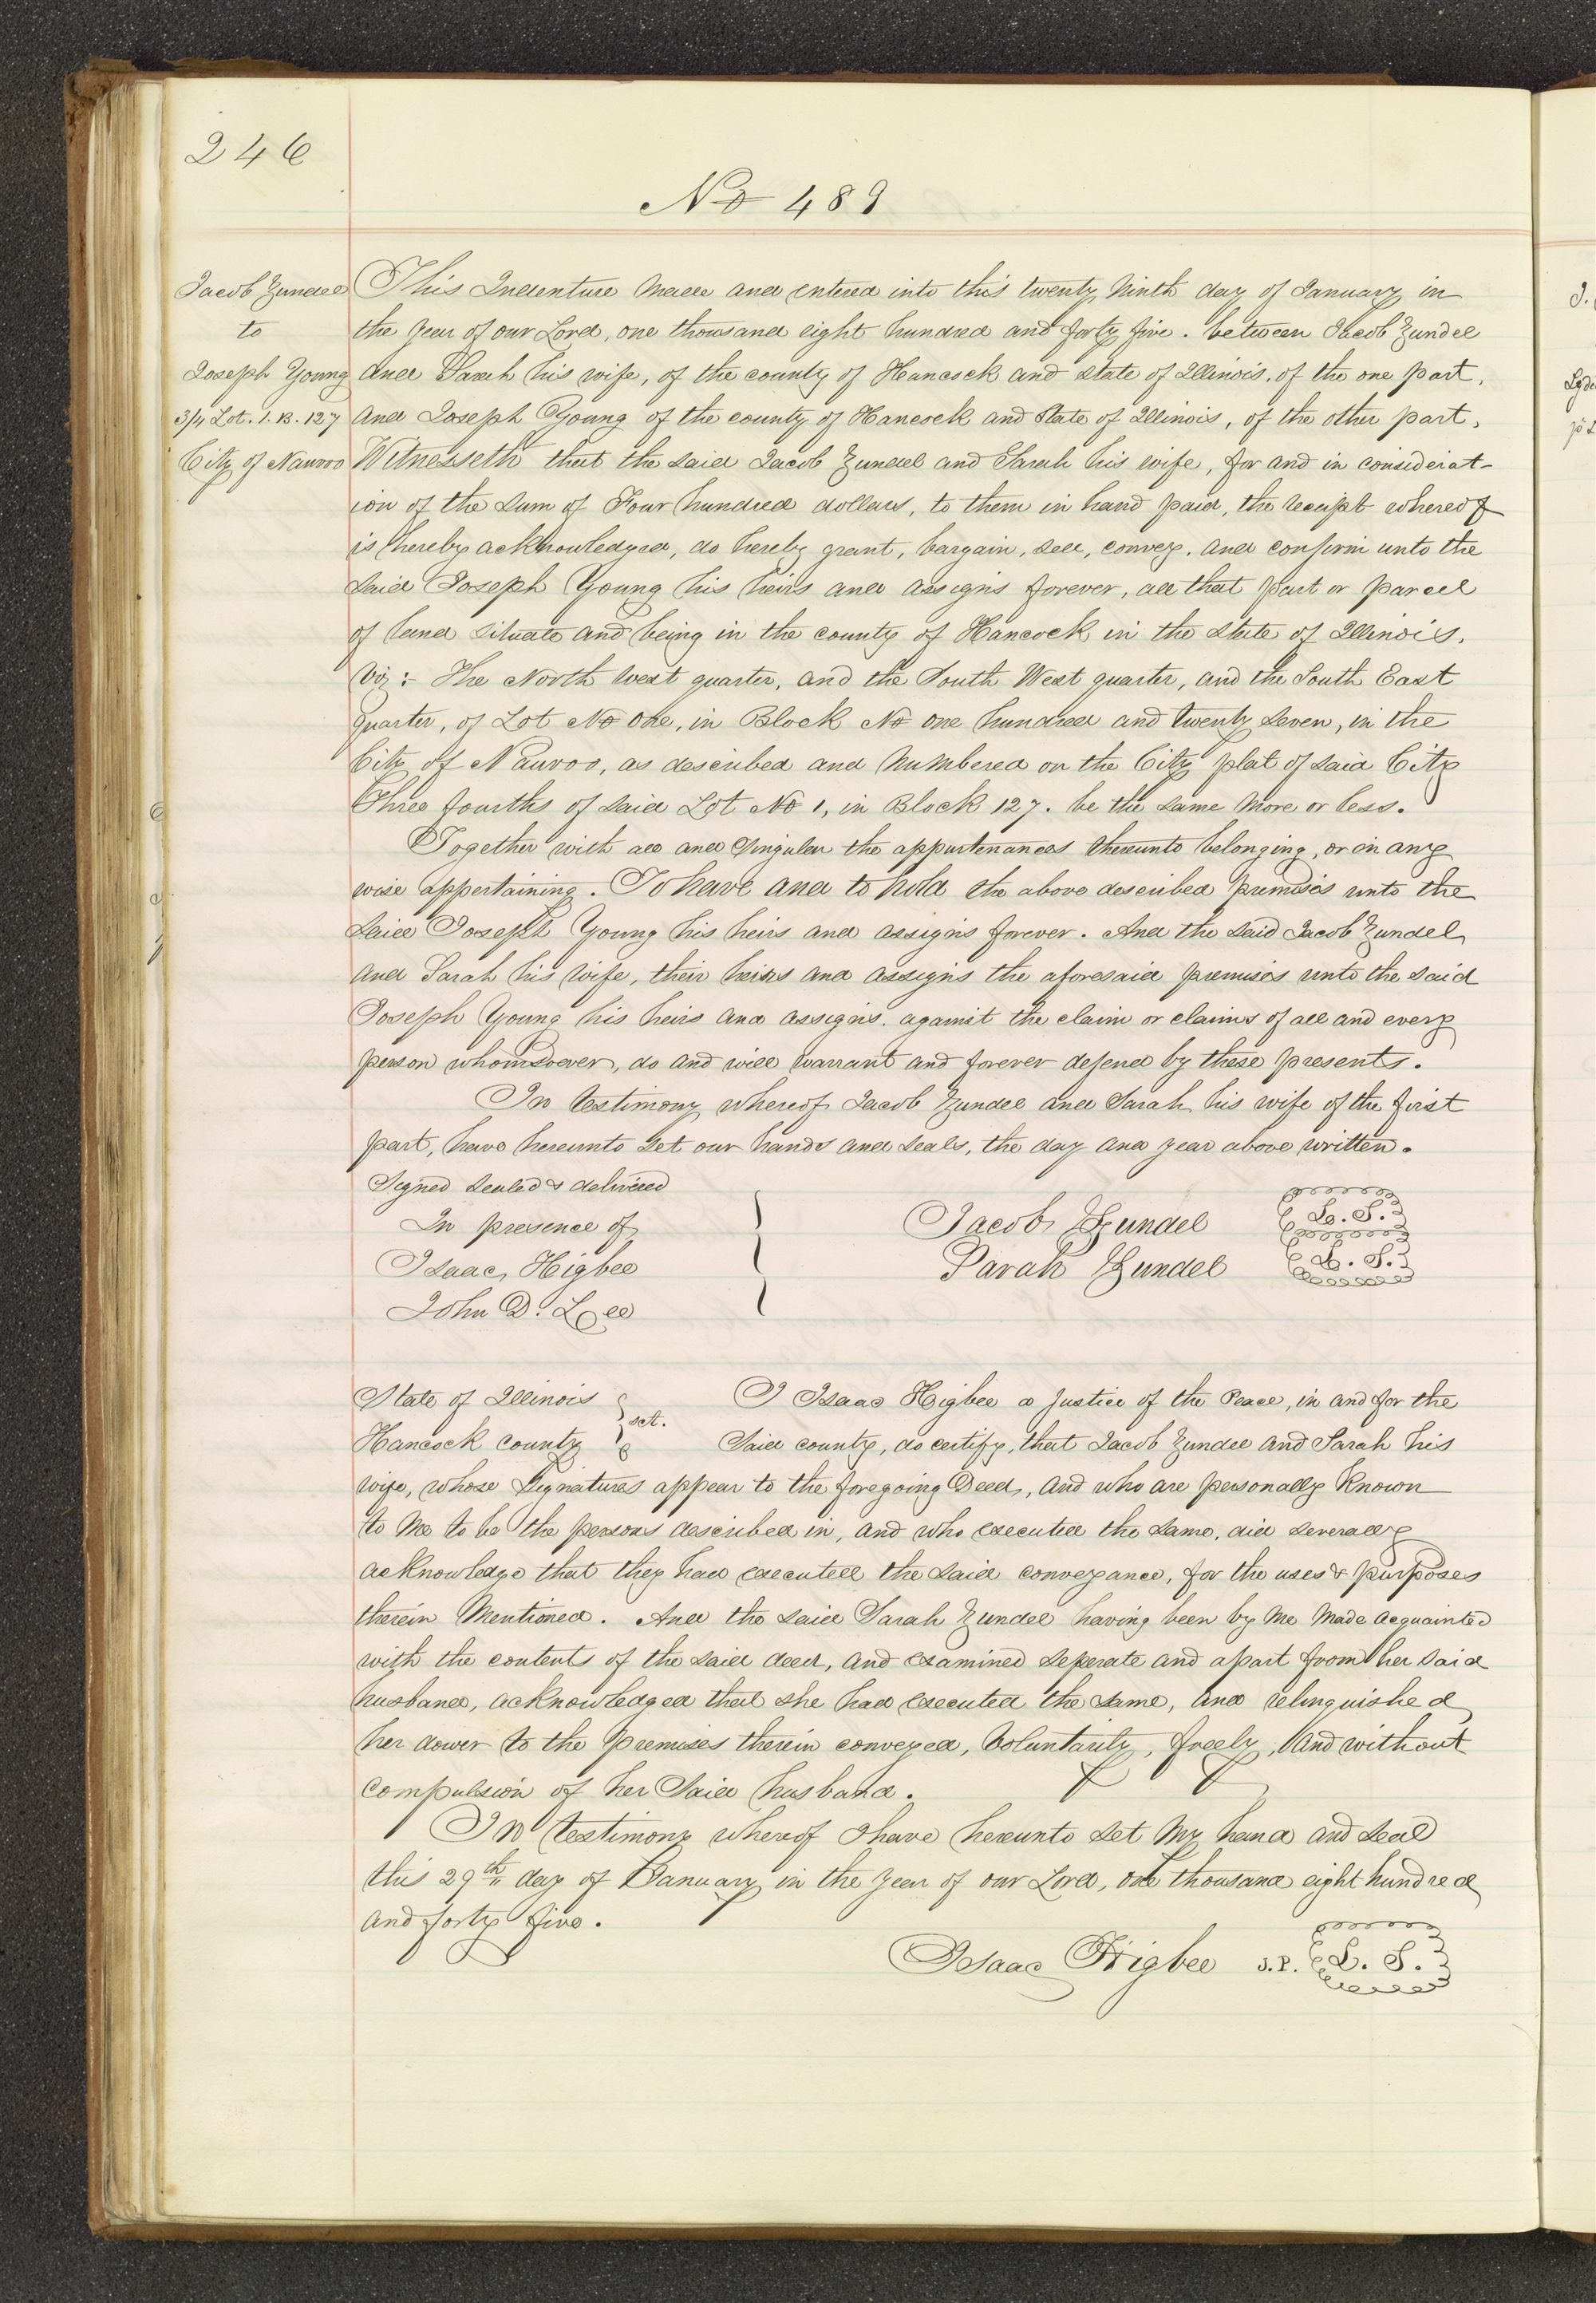 246
No 489
Jacob Zundel
to
Joseph Young
3/4 Lot. 1. B. 127
City of Nauvoo
This Indenture made and entered into this twenty ninth day of January in
the year of our Lord, one thousand eight hundred and forty five. between Jacob Zundel
and Sarah his wife, of the county of Hancock and state of Illinois, of the one part,
and Joseph Young of the county of Hancock and State of Illinois, of the other part,
Witnesseth that the said Jacob Zundel and Sarah his wife, for and in considerat-
ion of the sum of Four hundred dollars, to them in hand paid, the receipt whereof
is hereby acknowledged, do hereby grant, bargain, sell, convey, and confirm unto the
said Joseph Young his heirs and assigns forever, all that part or parcel
of land situate and being in the county of Hancock in the state of Illinois,
viz:- The North West quarter, and the South West quarter, and the South East
quarter, of Lot No one, in Block No one hundred and twenty seven, in the
City of Nauvoo, as described and numbered on the City plat of said City
Three fourths of said Lot No 1, in Block 127. be the same more or less.
Together with all and singular the appurtenances thereunto belonging, or in any
wise appertaining. To have and to hold the above described premises unto the
said Joseph Young his heirs and assigns forever. And the said Jacob Zundel
and Sarah his wife, their heirs and assigns the aforesaid premises unto the said
Joseph Young his heirs and assigns. against the claim or claims of all and every
person whomsoever, do and will warrant and forever defend by these presents.
In testimony whereof Jacob Zundel and Sarah his wife of the first
part, have hereunto set our hands and seals, the day and year above written.
Signed sealed & delivered
In presence of
Isaac Higbee
John D. Lee
Jacob Zundel L. S.
Sarah Zundel L. S.
State of Illinois
Hancock county
sct.
I Isaac Higbee a Justice of the Peace, in and for the
Said county, do certify, that Jacob Zundel and Sarah his
wife, whose Signatures appear to the foregoing Deed, and who are personally known
to me to be the persons described in, and who executed the same, did severally
acknowledge that they had executed the said conveyance, for the uses & purposes
therein mentioned. And the said Sarah Zundel having been by me made acquainted
with the contents of the said deed, and examined seperate and apart from her said
husband, acknowledged that she had executed the same, and relinquished
her dower to the premises therein conveyed, voluntarily, freely, and without
compulsion of her said husband.
In testimony whereof I have hereunto set my hand and seal
this 29th day of January in the year of our Lord, one thousand eight hundred
and forty five.
Isaac Higbee J.P. L. S.